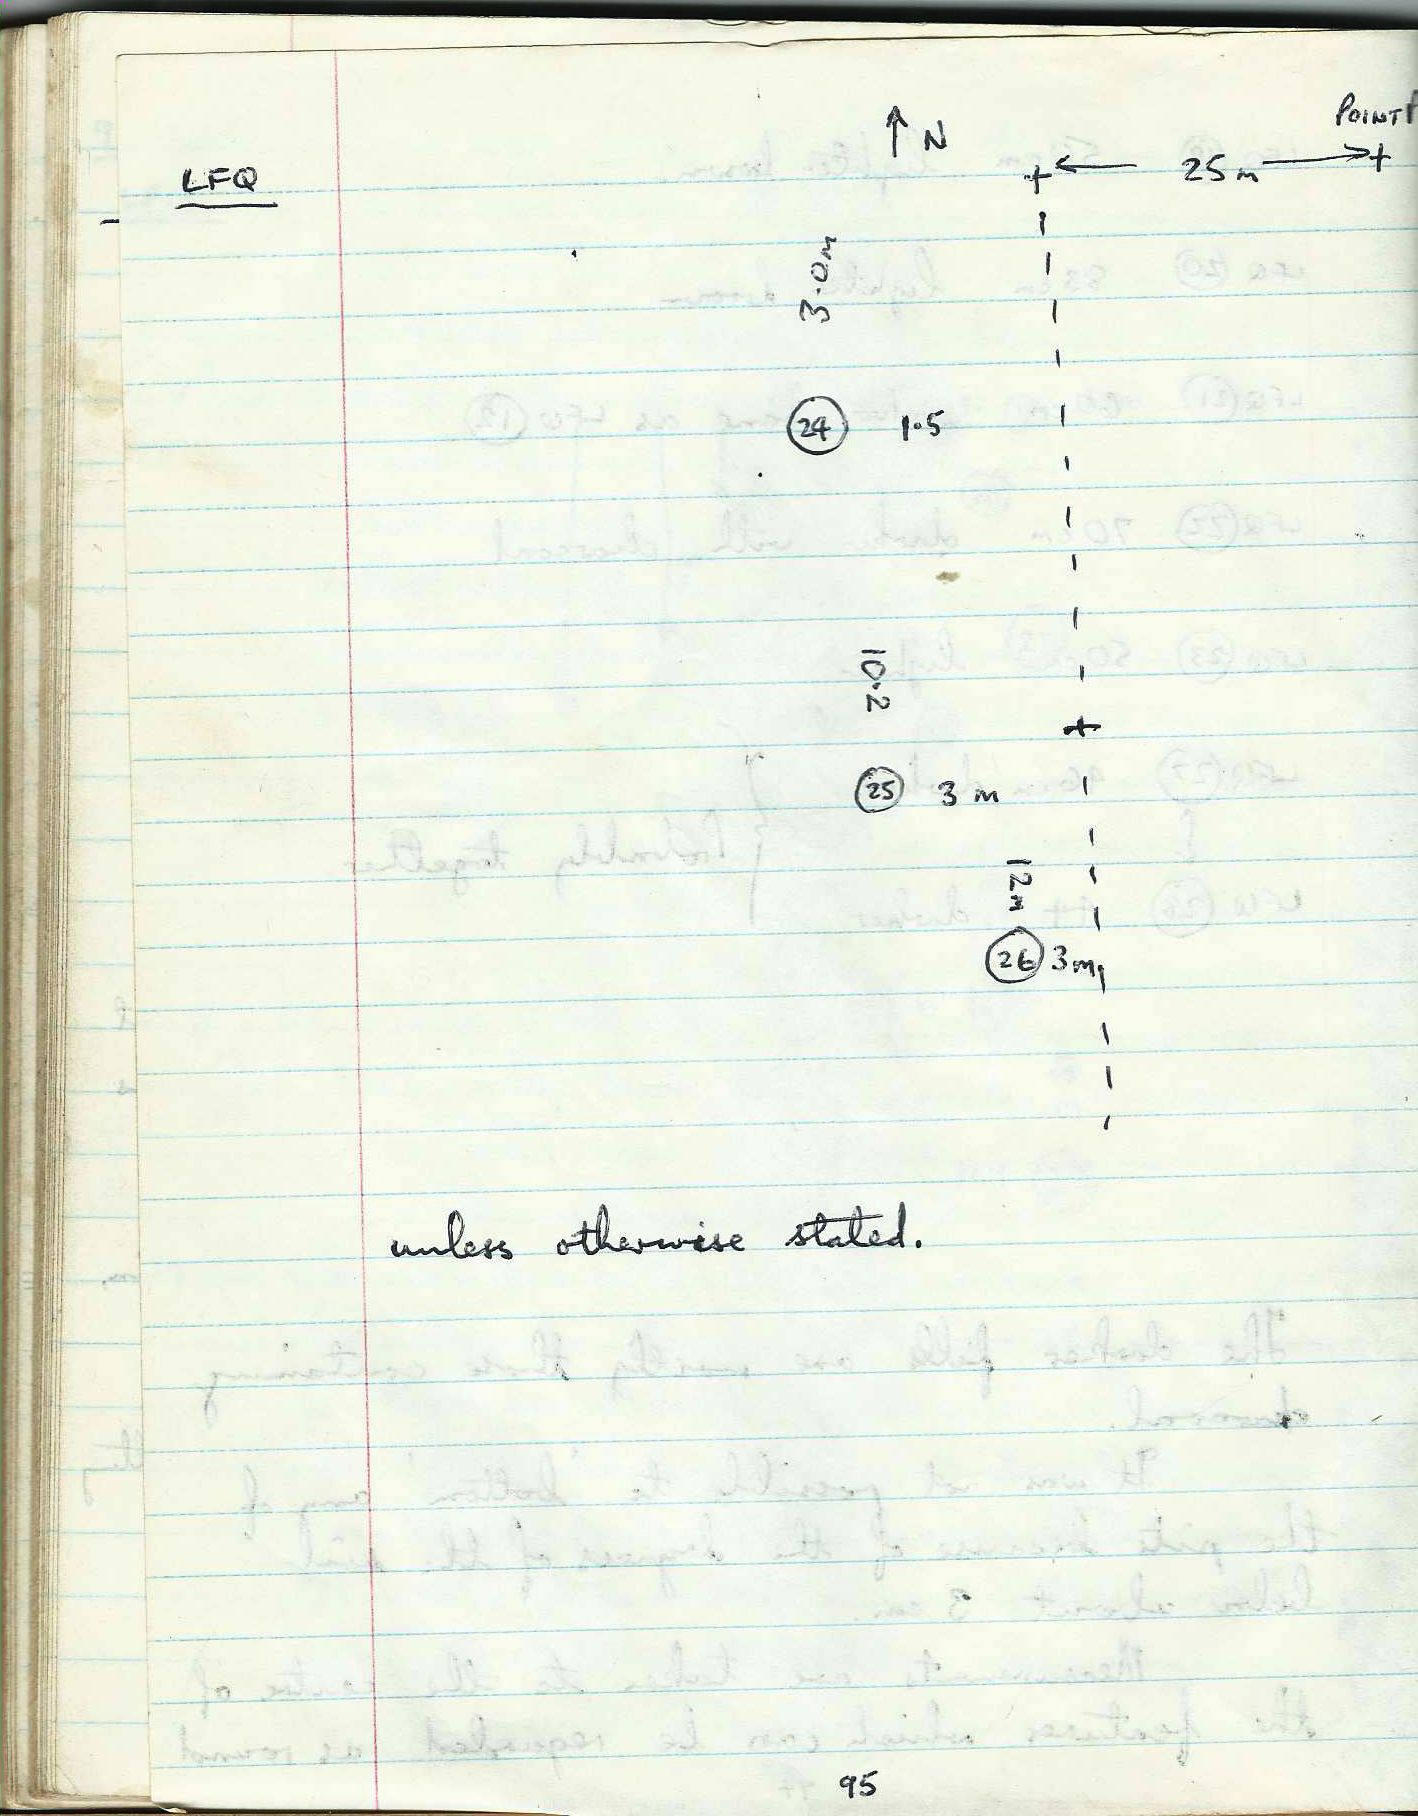 POINT P
↑ N
LFQ
+ ← 25m → +
3.0m
24 1.5
10.2
+
25 3 m
12m
26 3m
unless otherwise stated.
95